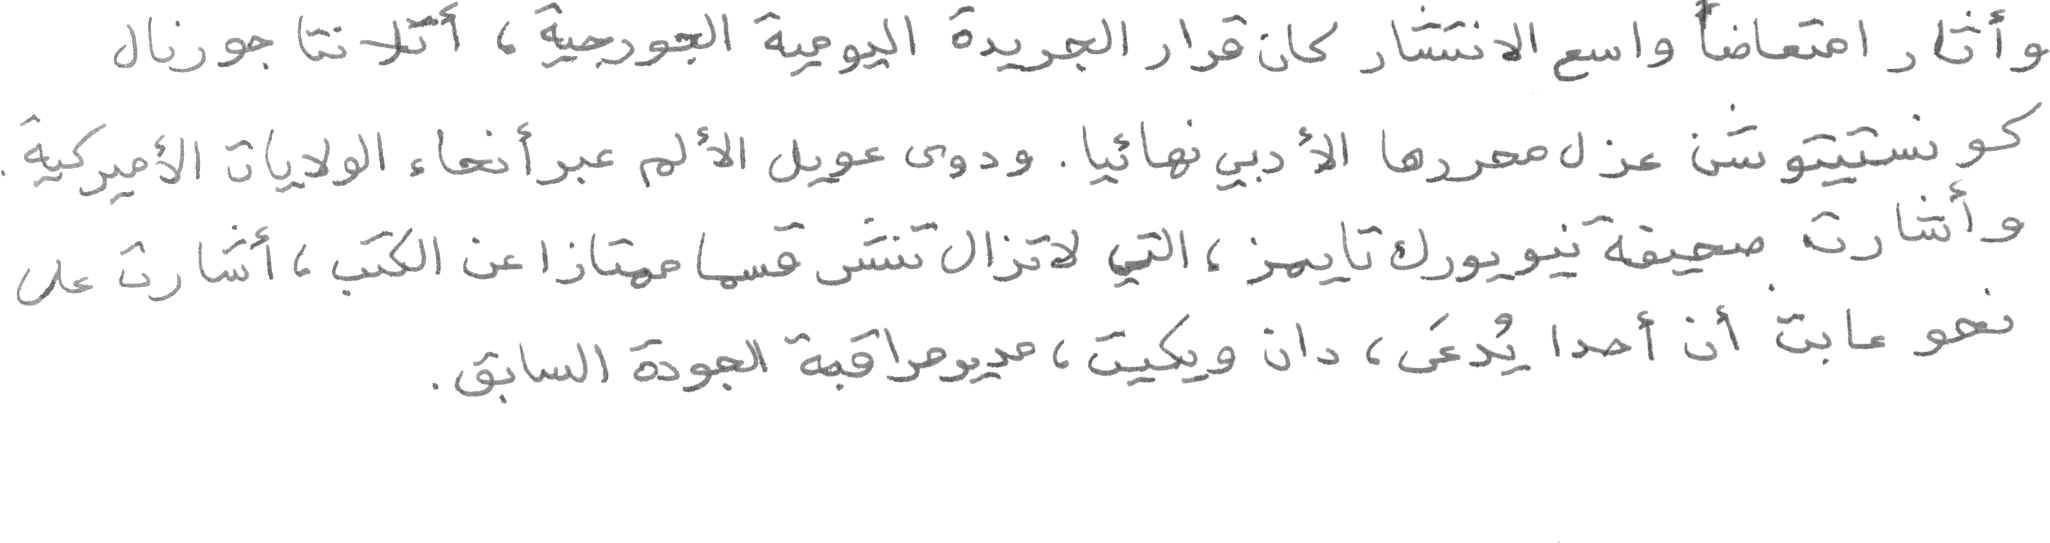 وأثار امتعاضاً واسع الانتشار كان قرار الجريدة اليومية الجورجية، أتلانتا جورنال
كونستيتوشن عزل محررها الأدبي نهائيا. ودوى عويل الألم عبر أنحاء الولايات الأميركية.
وأشارت صحيفة نيويورك تايمز، التي لا تزال تنشر قسما ممتازا عن الكتب، أشارت على
نحو عابث أن أحدا يُدعَى، دان ويكيت، مدير مراقبة الجودة السابق.